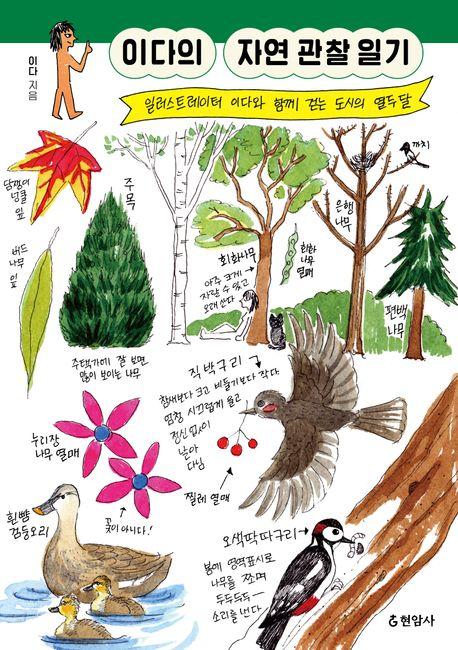 이다의 자연 관찰 일기
이다
지음
일러스트레이터 이다와 함께 걷는 도시의 열두 달
까치
담쟁이
덩굴
잎
주목
은행
나무
버드
나무
잎
회화나무
아주 크게
자랄 수 있고
오래 산다
회화
나무
열매
편백
나무
주택가에 잘 보면
많이 보이는 나무
직박구리
참새보다 크고 비둘기보다 작다
엄청 시끄럽게 울고
정신없이
날아
다님
누리장
나무 열매
찔레 열매
꽃이 아니다!
흰뺨
검둥오리
오색딱따구리
봄에 영역표시로
나무를 쪼며
두두두두두—
소리를 낸다
현암사